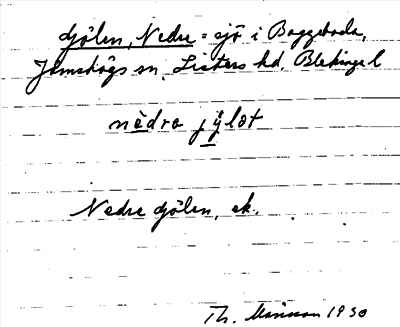 Gölen, Nedre = sjö i Baggeboda,
Jämshögs sn, Listers hd. Blekinge l
nèdra jýlət
Nedre gölen, ek.
Th. Månsson 1930